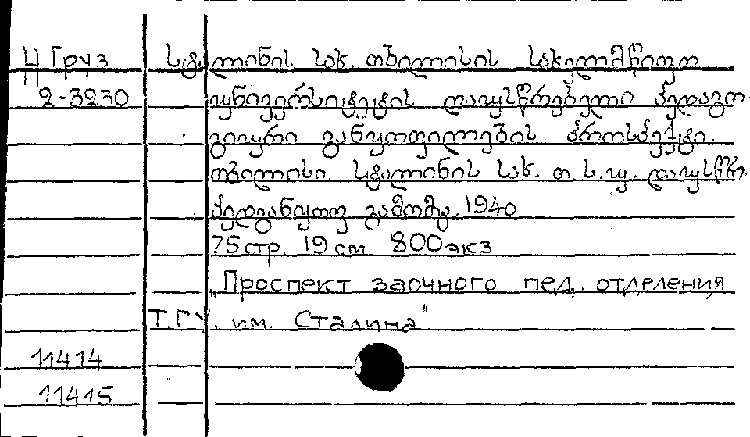 Ц Груз სტალინის სახ. თბილისის სახელმწიფო
2-3230 უნივერსიტეტის დაუსწრებელი პედაგო-
გიური განყოფილების პროსპექტი.
თბილისი. სტალინის სახ. თ.ს.უ. დაუსწრ.
პედგანყოფ. გამომც. 1940
75 стр. 19 см 800 экз
"Проспект заочного пед. отделения
Т.Г.У. им. Сталина"
11414
11415